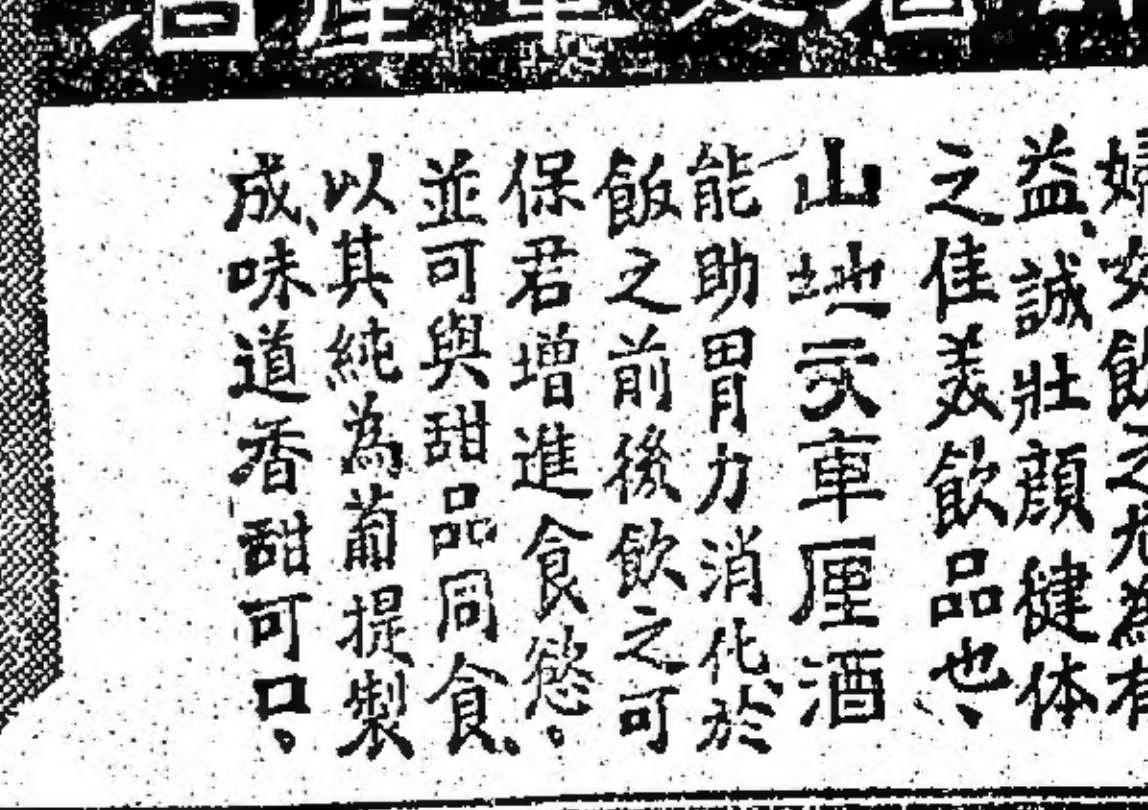 益、誠壯顏健体
之佳美飲品也、
山地文車厘酒
能助胃力消化於
飯之前後飲之可
保君增進食慾。
並可與甜品同食、
以其純為葡提製
成、味道香甜可口。